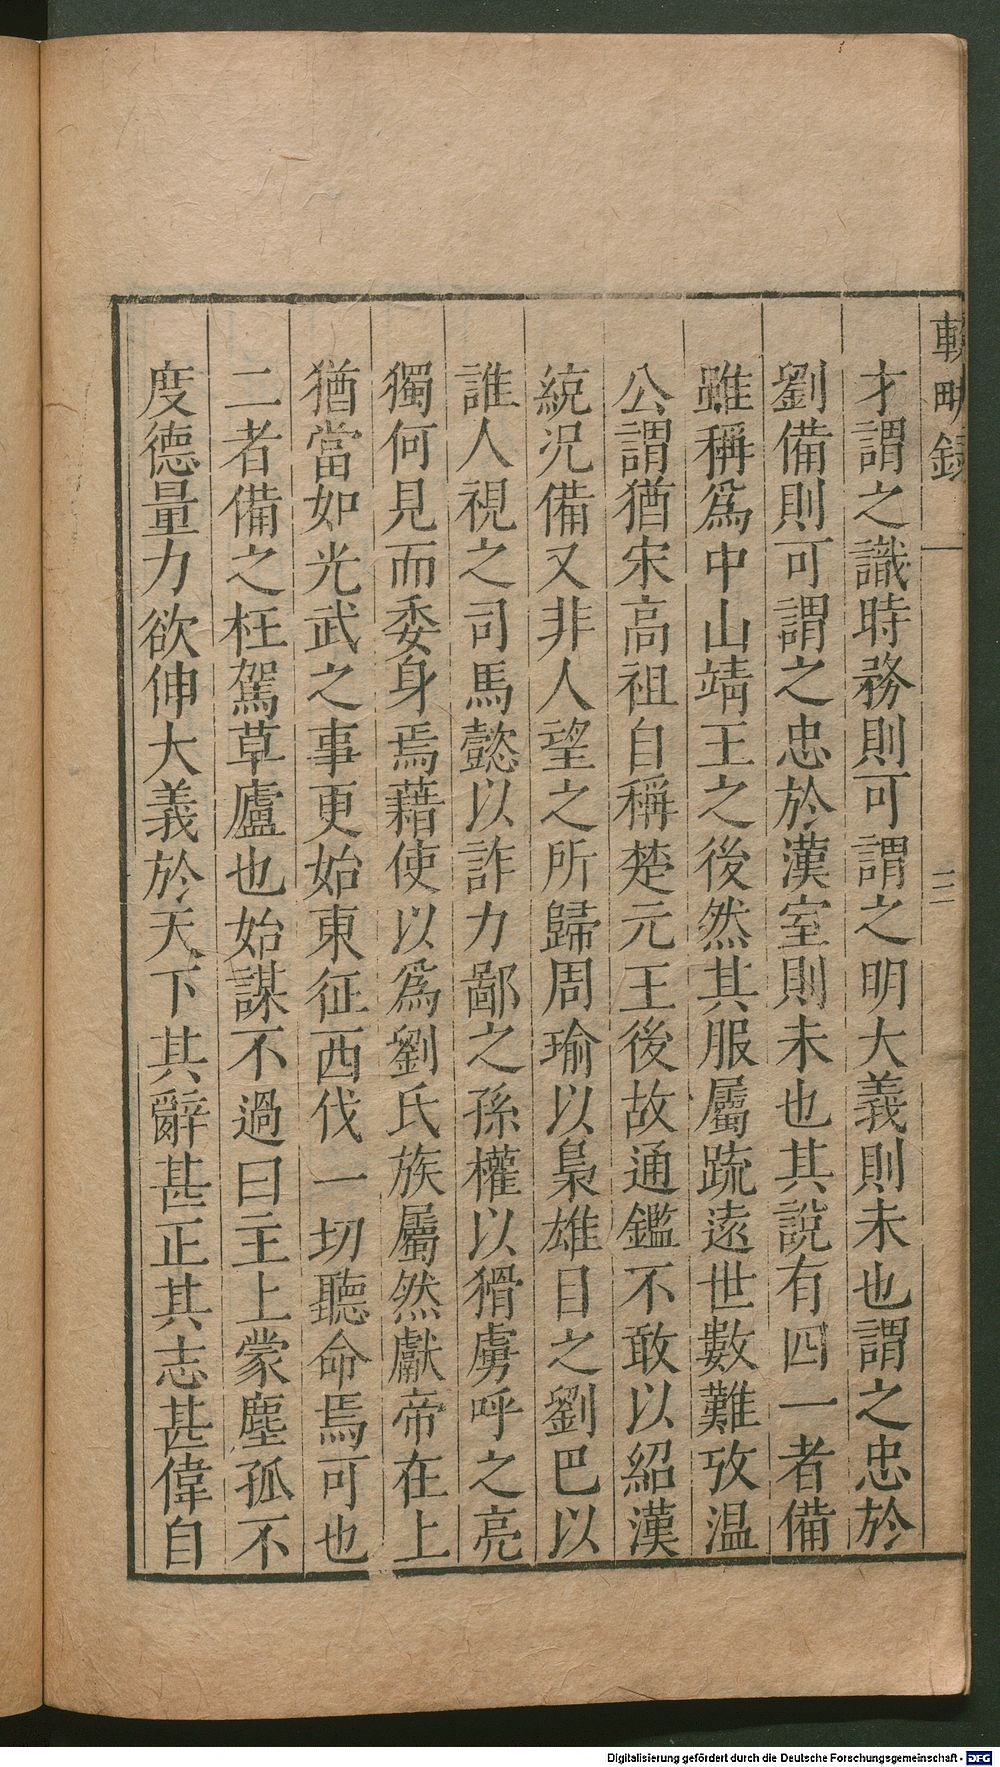 輟畊錄
三
才謂之識時務則可謂之明大義則未也謂之忠於
劉備則可謂之忠於漢室則未也其說有四一者備
雖稱爲中山靖王之後然其服屬䟽遠世數難攷温
公謂猶宋高祖自稱楚元王後故通鑑不敢以紹漢
統况備又非人望之所歸周瑜以梟雄目之劉巴以
誰人視之司馬懿以詐力鄙之孫權以猾虜呼之亮
獨何見而委身焉藉使以爲劉氏族屬然獻帝在上
猶當如光武之事更始東征西伐一切聽命焉可也
二者備之枉駕草廬也始謀不過曰主上蒙塵孤不
度德量力欲伸大義於天下其辭甚正其志甚偉自
Digitalisierung gefördert durch die Deutsche Forschungsgemeinschaft - DFG